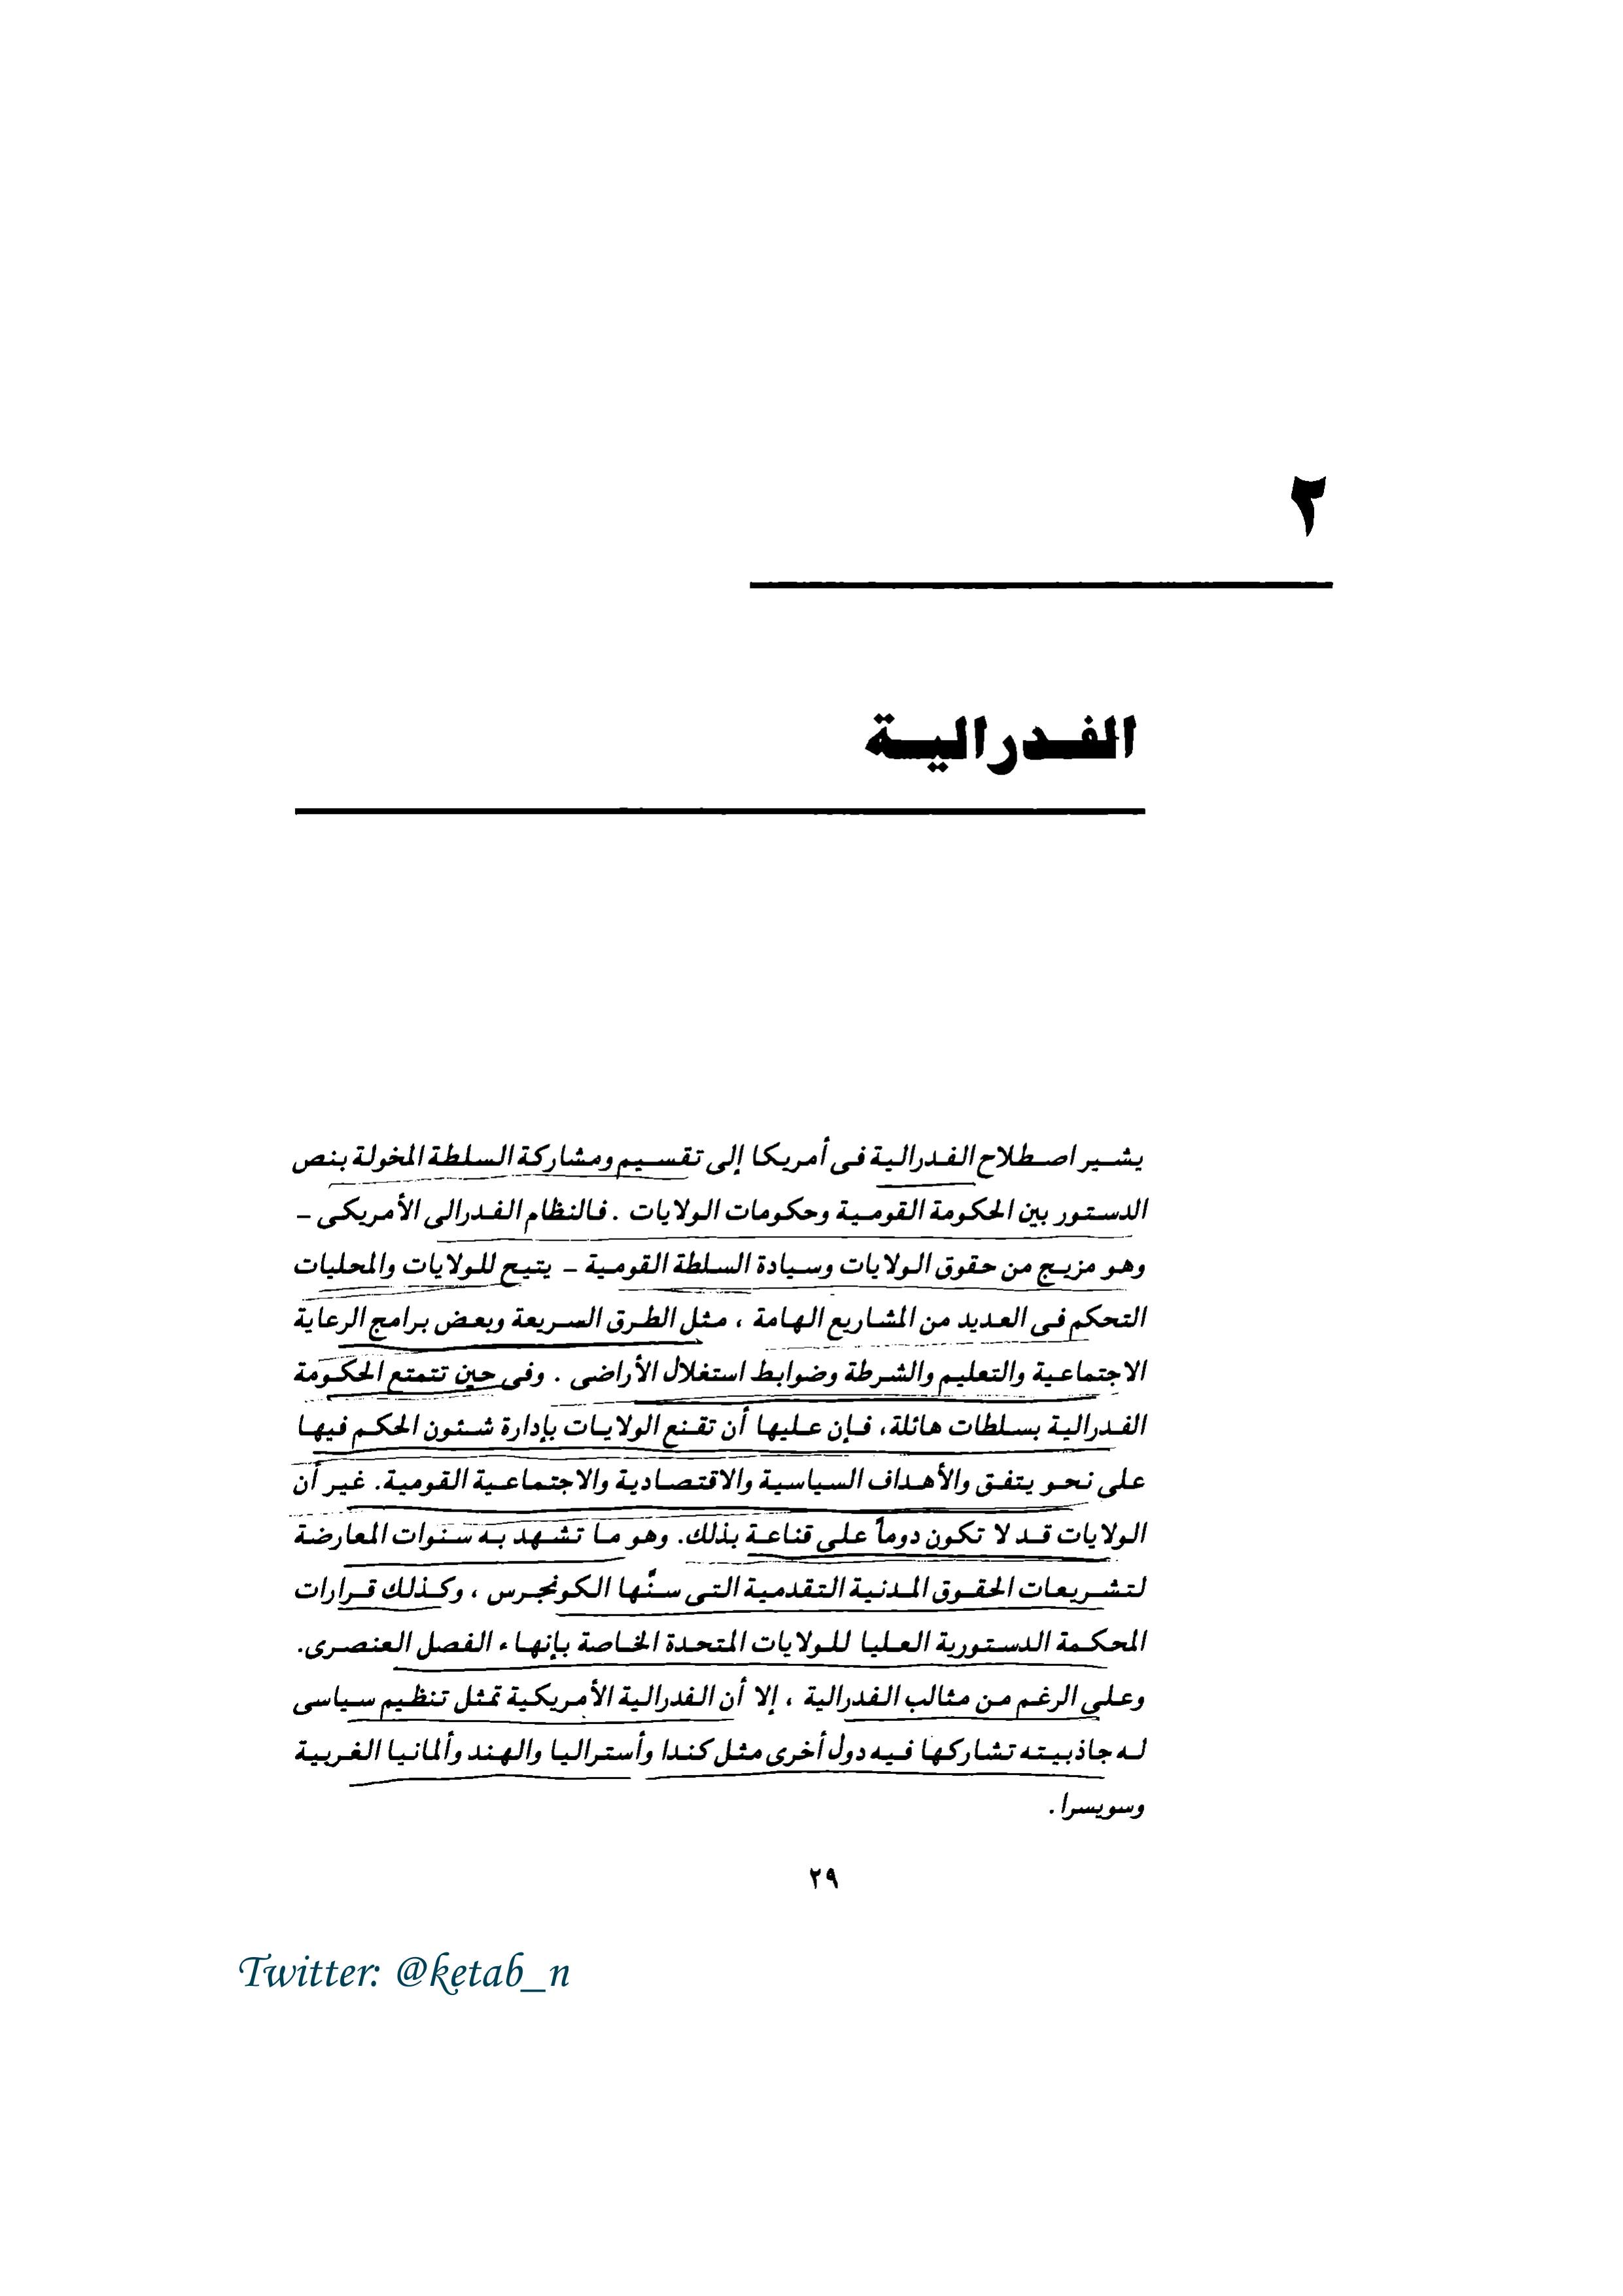 ٢
الفـدراليـة
يشـير اصـطلاح الفـدرالية فى أمريكا إلى تقسـيم ومشاركة السلطة المخولة بنص
الدستور بين الحكومة القومية وحكومات الولايات . فالنظام الفدرالى الأمريكى –
وهو مزيج من حقوق الولايات وسيادة السلطة القومية – يتيح للولايات والمحليات
التحكم فى العديد من المشاريع الهامة ، مثل الطرق السريعة وبعض برامج الرعاية
الاجتماعية والتعليم والشرطة وضوابط استغلال الأراضى . وفى حين تتمتع الحكومة
الفدرالية بسلطات هائلة، فإن عليها أن تقنع الولايات بإدارة شئون الحكم فيها
على نحو يتفق والأهداف السياسية والاقتصادية والاجتماعية القومية. غير أن
الولايات قد لا تكون دوماً على قناعة بذلك. وهو ما تشهد به سنوات المعارضة
لتشريعات الحقوق المدنية التقدمية التى سنَّها الكونجرس ، وكذلك قرارات
المحكمة الدستورية العليا للولايات المتحدة الخاصة بإنهاء الفصل العنصرى.
وعلى الرغم من مثالب الفدرالية ، إلا أن الفدرالية الأمريكية تمثل تنظيم سياسى
له جاذبيته تشاركها فيه دول أخرى مثل كندا وأستراليا والهند وألمانيا الغربية
وسويسرا .
٢٩
Twitter: @ketab_n